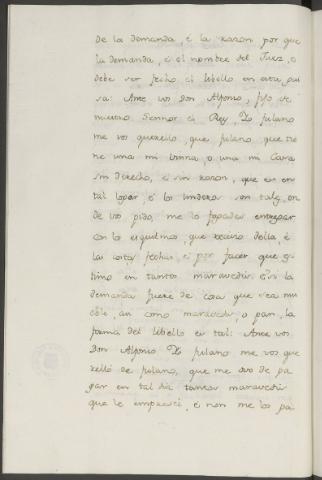 de la demanda é la razon por que
la demanda, é el nombre del Juez, é
debe ser fecho el libello en esta gui
sa: Ante vos Don Alfonso, fijo de
nuestro Sennor el Rey, Yo fulano
me vos querello, que fulano que tie
ne una mi vinna o una mi Casa
sin derecho, é sin razon, que es en
tal logar, é los linderos son tales, on
de vos pido, me lo fagades entregar
con los esquilmos, que recivio della, é
las costas fechas é por facer que es
timo en tantos maravedis: é si la
demanda fuere de cosa que sea mu
eble, asi como maravedis, o pan, la
forma del libello es tal: Ante vos
Don Alfonso Yo fulano me vos que
rello de fulano, que me ovo de pa
gar en tal dia tantos maravedis
que le empresté, é non me los pa